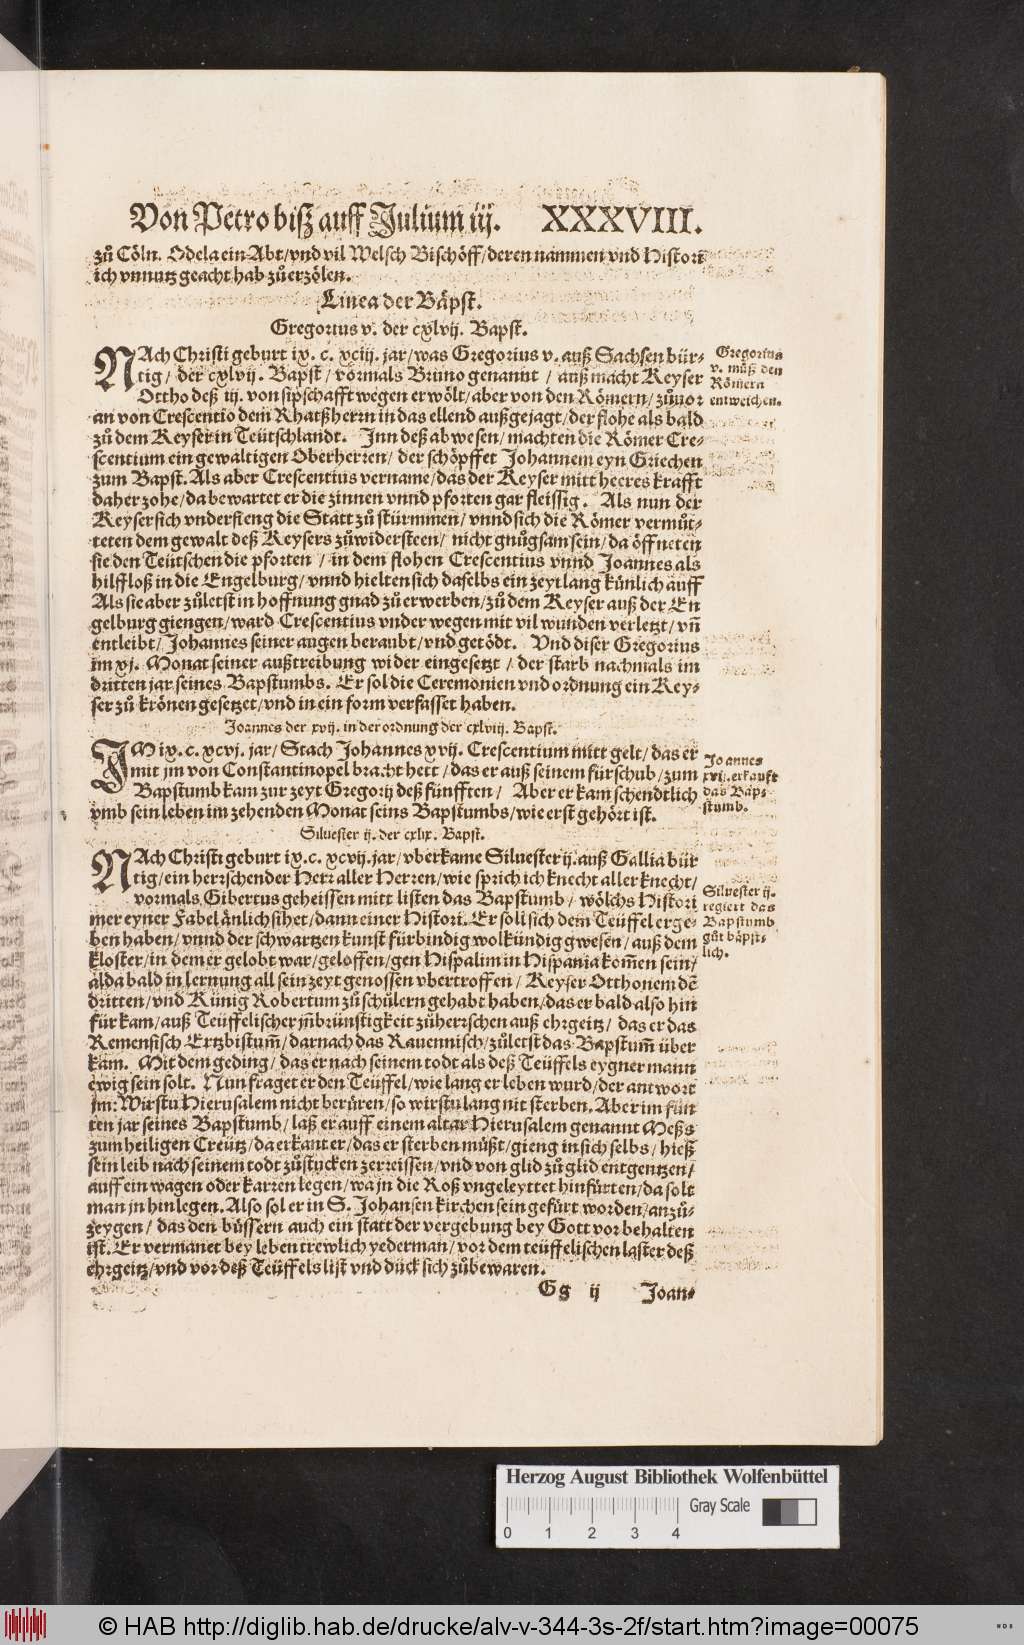 Von Petro biß auff Julium iij. XXXVIII.
zů Cöln. Odela ein Abt/vnd vil Welsch Bischöff/deren nammen vnd Historiē
ich vnnutz geacht hab zů erzölen.
Linea der Bäpst.
Gregorius v. der cxlvij. Bapst.
NAch Christi geburt ix. c. xciij. jar/was Gregorius v. auß Sachsen bür-
tig/ der cxlvij. Bapst/ vormals Bruno genannt / auß macht Keyser
Ottho deß iij. von sipschafft wegen erwölt/aber von den Römern/ zůuor
an von Crescentio dem Rhatßherrn in das ellend außgejagt/der flohe als bald
zů dem Keyser in Teütschlandt. Inn deß abwesen/machten die Römer Cre-
scentium ein gewaltigen Oberherren/ der schöpffet Johannem eyn Griechen
zum Bapst. Als aber Crescentius vername/das der Keyser mitt heeres krafft
daher zohe/da bewartet er die zinnen vnnd pforten gar fleissig. Als nun der
Keyser sich vnderfieng die Statt zů stürmmen/vnnd sich die Römer vermůt-
teten dem gewalt deß Keysers zůwidersteen/ nicht gnůgsam sein/da öffneten
sie den Teütschen die pforten / in dem flohen Crescentius vnnd Joannes als
hilffloß in die Engelburg/vnnd hielten sich daselbs ein zeyt lang künlich auff
Als sie aber zůletst in hoffnung gnad zů erwerben/zů dem Keyser auß der En
gelburg giengen/ward Crescentius vnder wegen mit vil wunden verletzt/vñ
entleibt/Johannes seiner augen beraubt/vnd getödt. Vnd diser Gregorius
im xj. Monat seiner außtreibung wider eingesetzt / der starb nachmals im
dritten jar seines Bapstumbs. Er sol die Ceremonien vnd ordnung ein Key-
ser zů krönen gesetzet/vnd in ein form verfasset haben.
Gregorius
v. můß den
Römern
entweichen.
Joannes der xvij. in der ordnung der cxlviij. Bapst.
IM ix. c. xcvj. jar/ Stach Johannes xvij. Crescentium mitt gelt/das er
mit jm von Constantinopel bracht hett /das er auß seinem fürschub/zum
Bapstumb kam zur zeyt Gregorij deß fünfften / Aber er kam schendtlich
vmb sein leben im zehenden Monat seins Bapstumbs/wie erst gehört ist.
Joannes
xvij. erkaufft
das Bap-
stumb.
Siluester ij. der cxlix. Bapst.
NAch Christi geburt ix.c. xcvij. jar/vberkame Siluester ij. auß Gallia bür
tig/ein herrschender Herr aller Herren/wie sprich ich knecht aller knecht/
vormals Gibertus geheissen mitt listen das Bapstumb / wölchs Histori
mer eyner Fabel änlich sihet/dann einer Histori. Er soll sich dem Teüffel erge-
ben haben/vnnd der schwartzen kunst fürbindig wolkündig gwesen/auß dem
kloster/in dem er gelobt war/geloffen/gen Hispalim in Hispania kom̄en sein/
alda bald in lernung all sein zeyt genossen vbertroffen/ Keyser Otthonem dē
dritten/vnd Künig Robertum zů schülern gehabt haben/das er bald also hin
für kam/auß Teüffelischer jñbrünstigkeit zůherrschen auß ehrgeitz/ das er das
Remensisch Ertzbistum̄/darnach das Rauennisch/zůletst das Bapstum̄ über
kam. Mit dem geding / das er nach seinem todt als deß Teüffels eygner mann
ewig sein solt. Nun fraget er den Teüffel/wie lang er leben wurd/der antwort
jm: Wirstu Hierusalem nicht berüren/so wirstu lang nit sterben. Aber im fünf
ten jar seines Bapstumb/laß er auff einem altar Hierusalem genannt Meß
zum heiligen Creütz/da erkant er/das er sterben můßt/gieng in sich selbs/hieß
sein leib nach seinem todt zůstucken zerreissen/vnd von glid zů glid entgentzen/
auff ein wagen oder karren legen/wa jn die Roß vngeleyttet hinfürten/da solt
man jn hinlegen. Also sol er in S. Johansen kirchen sein gefürt worden/anzů-
zeygen/ das den büssern auch ein statt der vergebung bey Gott vorbehalten
ist. Er vermanet bey leben trewlich yederman/vor dem teüffelischen laster deß
ehrgeitz/vnd vor deß Teüffels list vnd dück sich zůbewaren.
Siluester ij.
regiert das
Bapstumb
gůt bäpst-
lich.
Gg ij Joan-
Herzog August Bibliothek Wolfenbüttel
0 1 2 3 4
Gray Scale
© HAB http://diglib.hab.de/drucke/alv-v-344-3s-2f/start.htm?image=00075